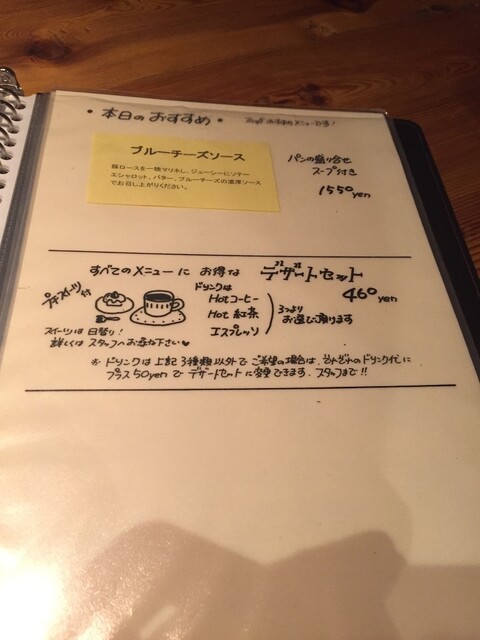 ・本日のおすすめ・
ブルーチーズソース
豚ロースを一晩マリネし、ジューシーにソテー
エシャロット、バター、ブルーチーズの濃厚ソース
でお召し上がりください。
パンの盛り合せ
スープ付き
1550yen
すべてのメニューに お得な デザートセット
460yen
プチスイーツ付
ドリンクは
Hotコーヒー
Hot 紅茶
エスプレッソ
3つより
お選び頂けます
スイーツは日替り!
詳しくはスタッフへお尋ね下さい♥
※ドリンクは上記3種類以外でご希望の場合は、それぞれのドリンク代に
プラス50yenでデザートセットに変更できます。スタッフまで!!